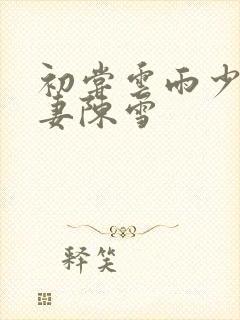 初尝雲雨少
妻陈雪
释笑